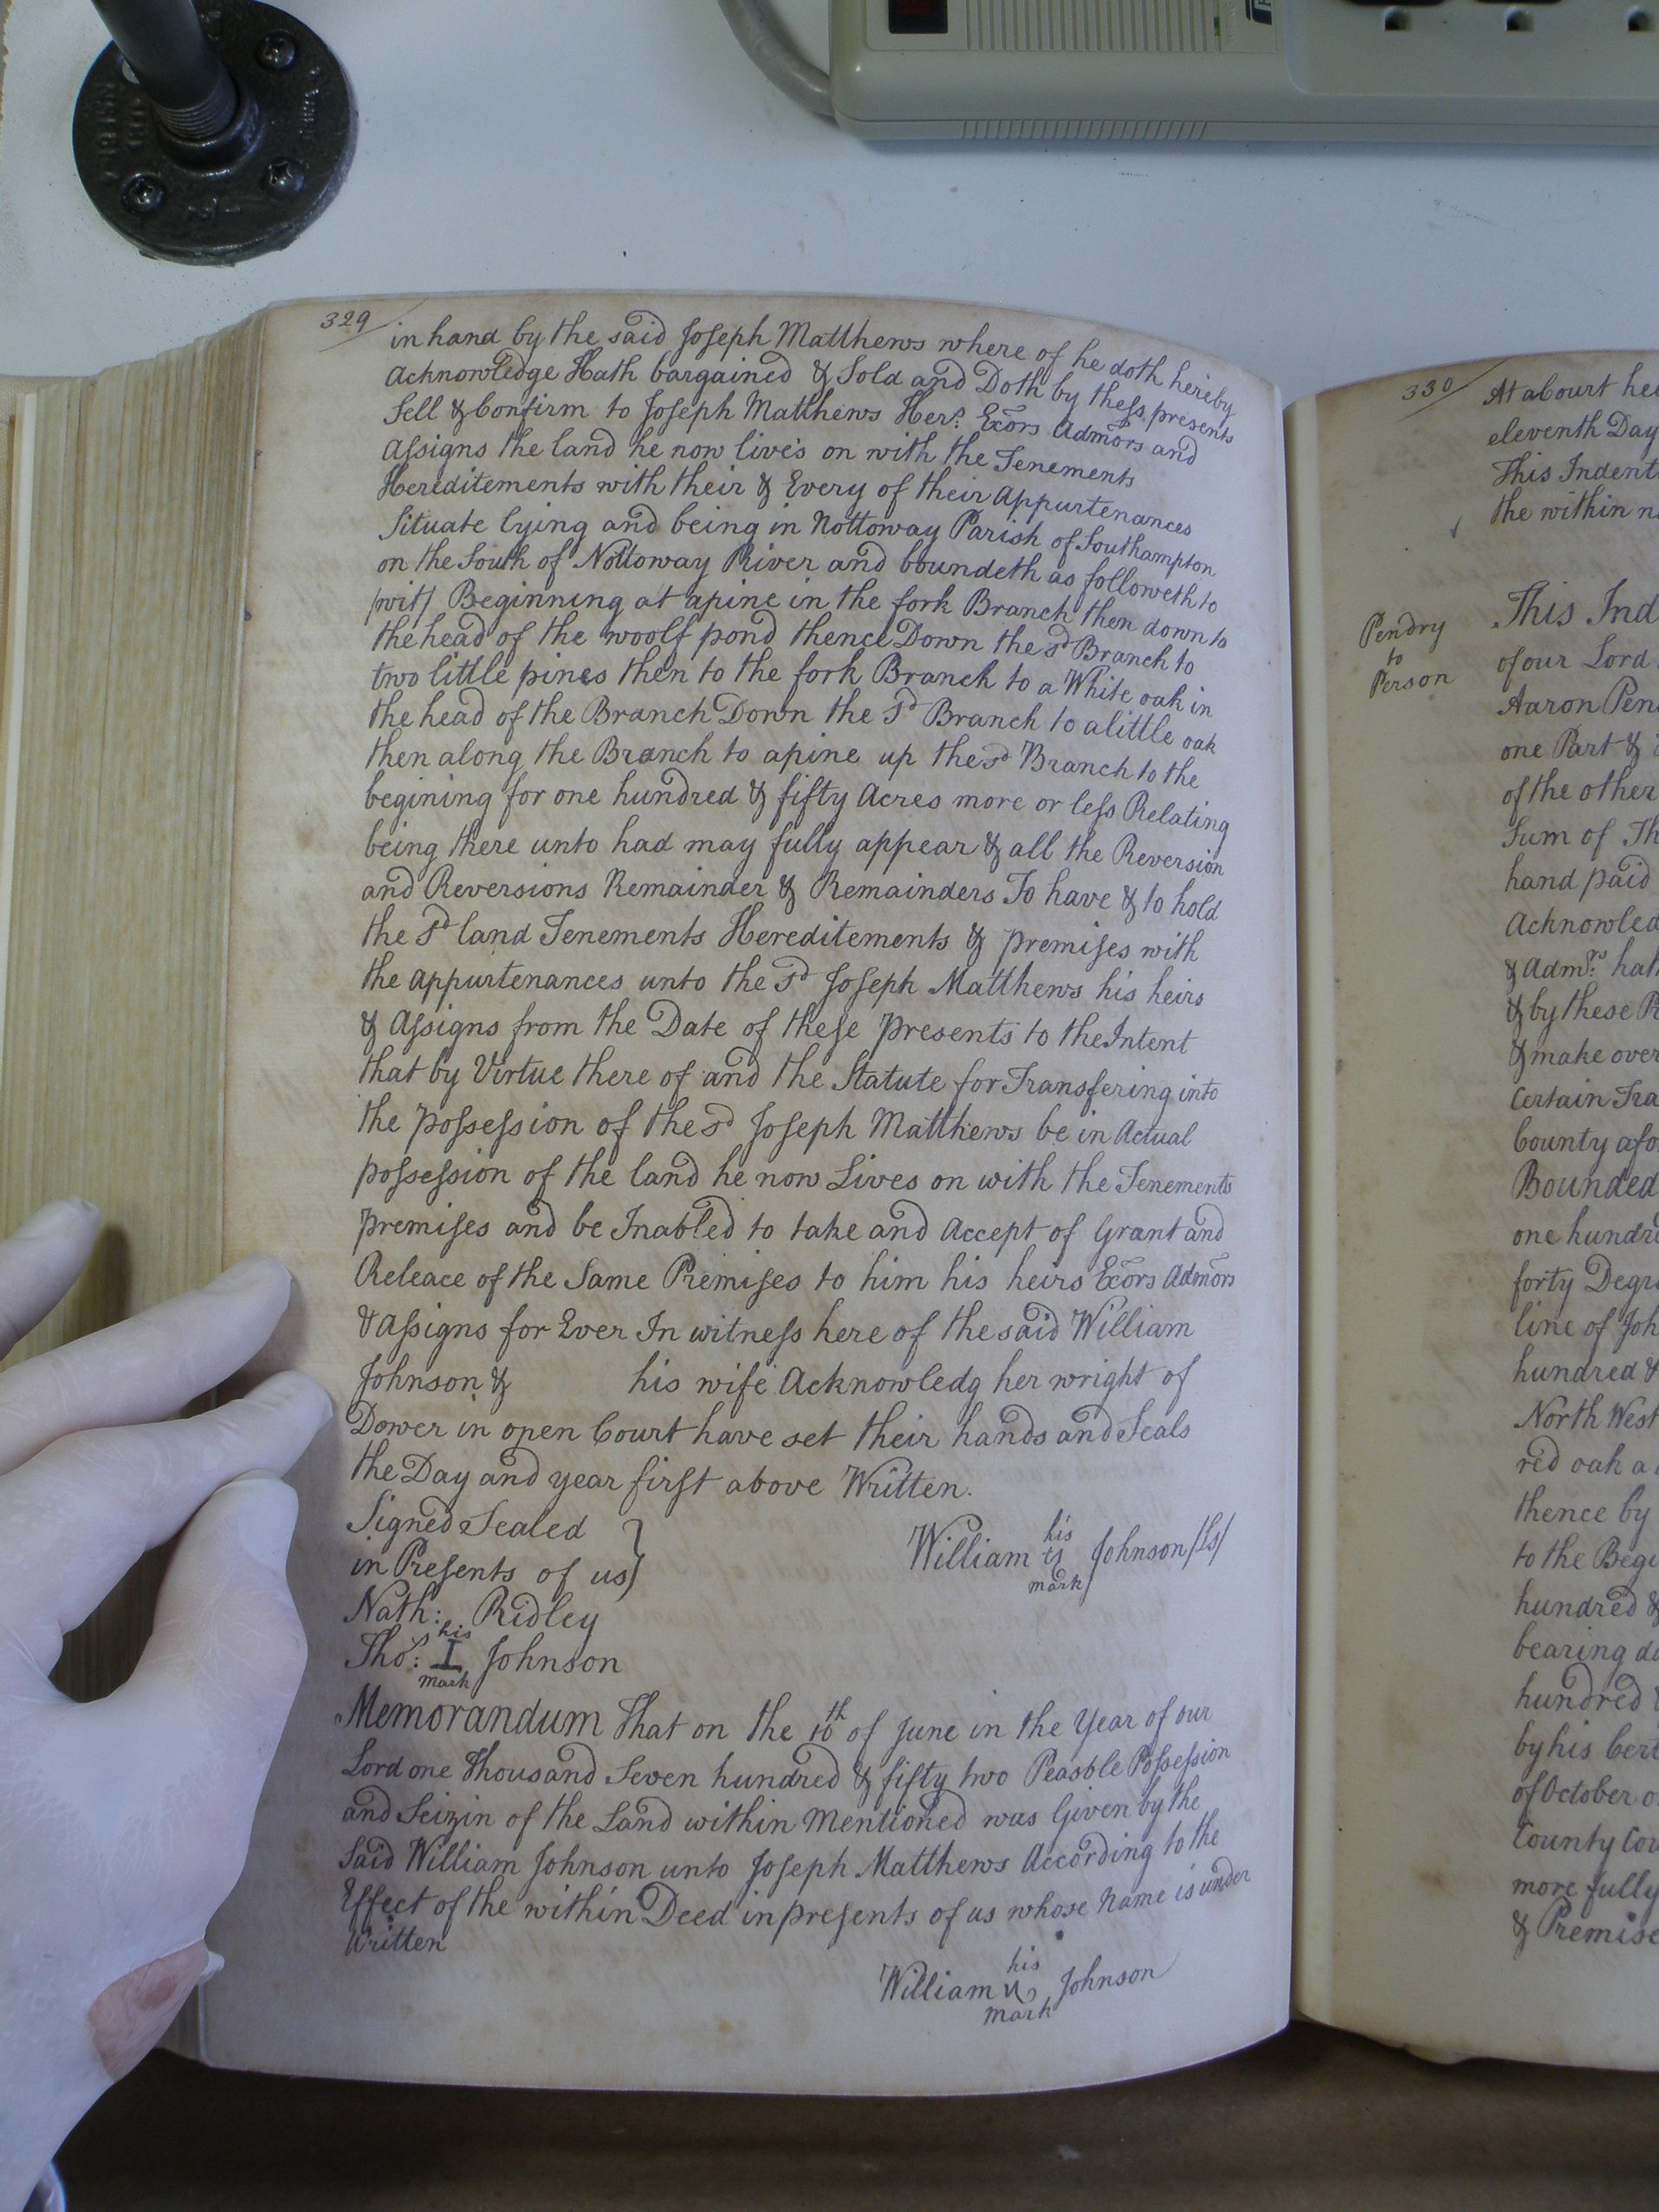 329
in hand by the said Joseph Matthews where of he doth hereby
Acknowledge Hath bargained & Sold and Doth by thess presents
Sell & Confirm to Joseph Matthews Hers. Exors Admors and
Assigns the land he now live's on with the Tenements
Hereditements with their & Every of their Appurtenances
Situate lying and being in Nottoway Parish of Southampton
on the South of Nottoway River and boundeth as followeth to
/wit/ Beginning at a pine in the fork Branch then down to
the head of the woolf pond thence Down the sd Branch to
two little pines then to the fork Branch to a White oak in
the head of the Branch Down the Sd Branch to a little oak
then along the Branch to a pine up the sd Branch to the
begining for one hundred & fifty Acres more or less Relating
being there unto had may fully appear & all the Reversion
and Reversions Remainder & Remainders To have & to hold
the Sd land Tenements Hereditements & premises with
the appurtenances unto the Sd Joseph Matthews his heirs
& Assigns from the Date of these presents to the Intent
that by Virtue there of and the Statute for Transfering into
the possession of the sd Joseph Matthews be in Actual
possession of the land he now Lives on with the Tenements
premises and be Inabled to take and Accept of Grant and
Releace of the Same Premises to him his heirs Exors Admors
& assigns for Ever In witness here of the said William
Johnson & his wife Acknowledg her wright of
Dower in open Court have set their hands and Seals
the Day and year first above Written.
Signed Sealed
in Presents of us}
William his mark Johnson /Ls/
Nath: Ridley
Thos: his I mark Johnson
Memorandum That on the 10th of June in the Year of our
Lord one Thousand Seven hundred & fifty two Peasble Possession
and Seizin of the Land within Mentioned was Given by the
Said William Johnson unto Joseph Matthews According to the
Effect of the within Deed in presents of us whose Name is under
Written
William his mark Johnson
330
At a Court he
eleventh Day
This Indent
the within n
Pendry
to
Person
This Ind
of our Lord
Aaron Pen
one Part &
of the other
Sum of Th
hand paid
Acknowled
& Admrs: hat
& by these P
& make over
Certain Tra
County afo
Bounded
one hundre
forty Degre
line of Joh
hundred &
North West
red oak a
thence by
to the Begi
hundred &
bearing da
hundred &
by his Cert
of October o
County Cou
more fully
& Premise